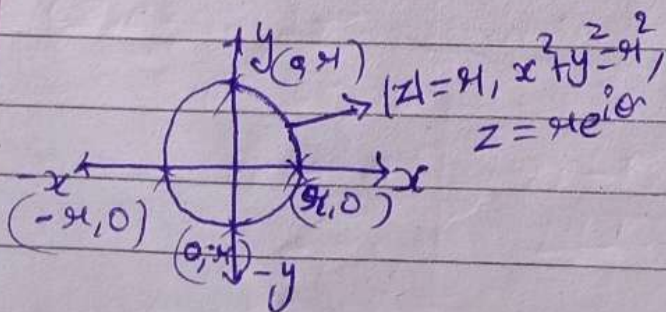 y
(0,r)
|z|=r, x²+y²=r²,
z=re^iθ
-x
x
(-r,0)
(r,0)
(0,-r)
-y